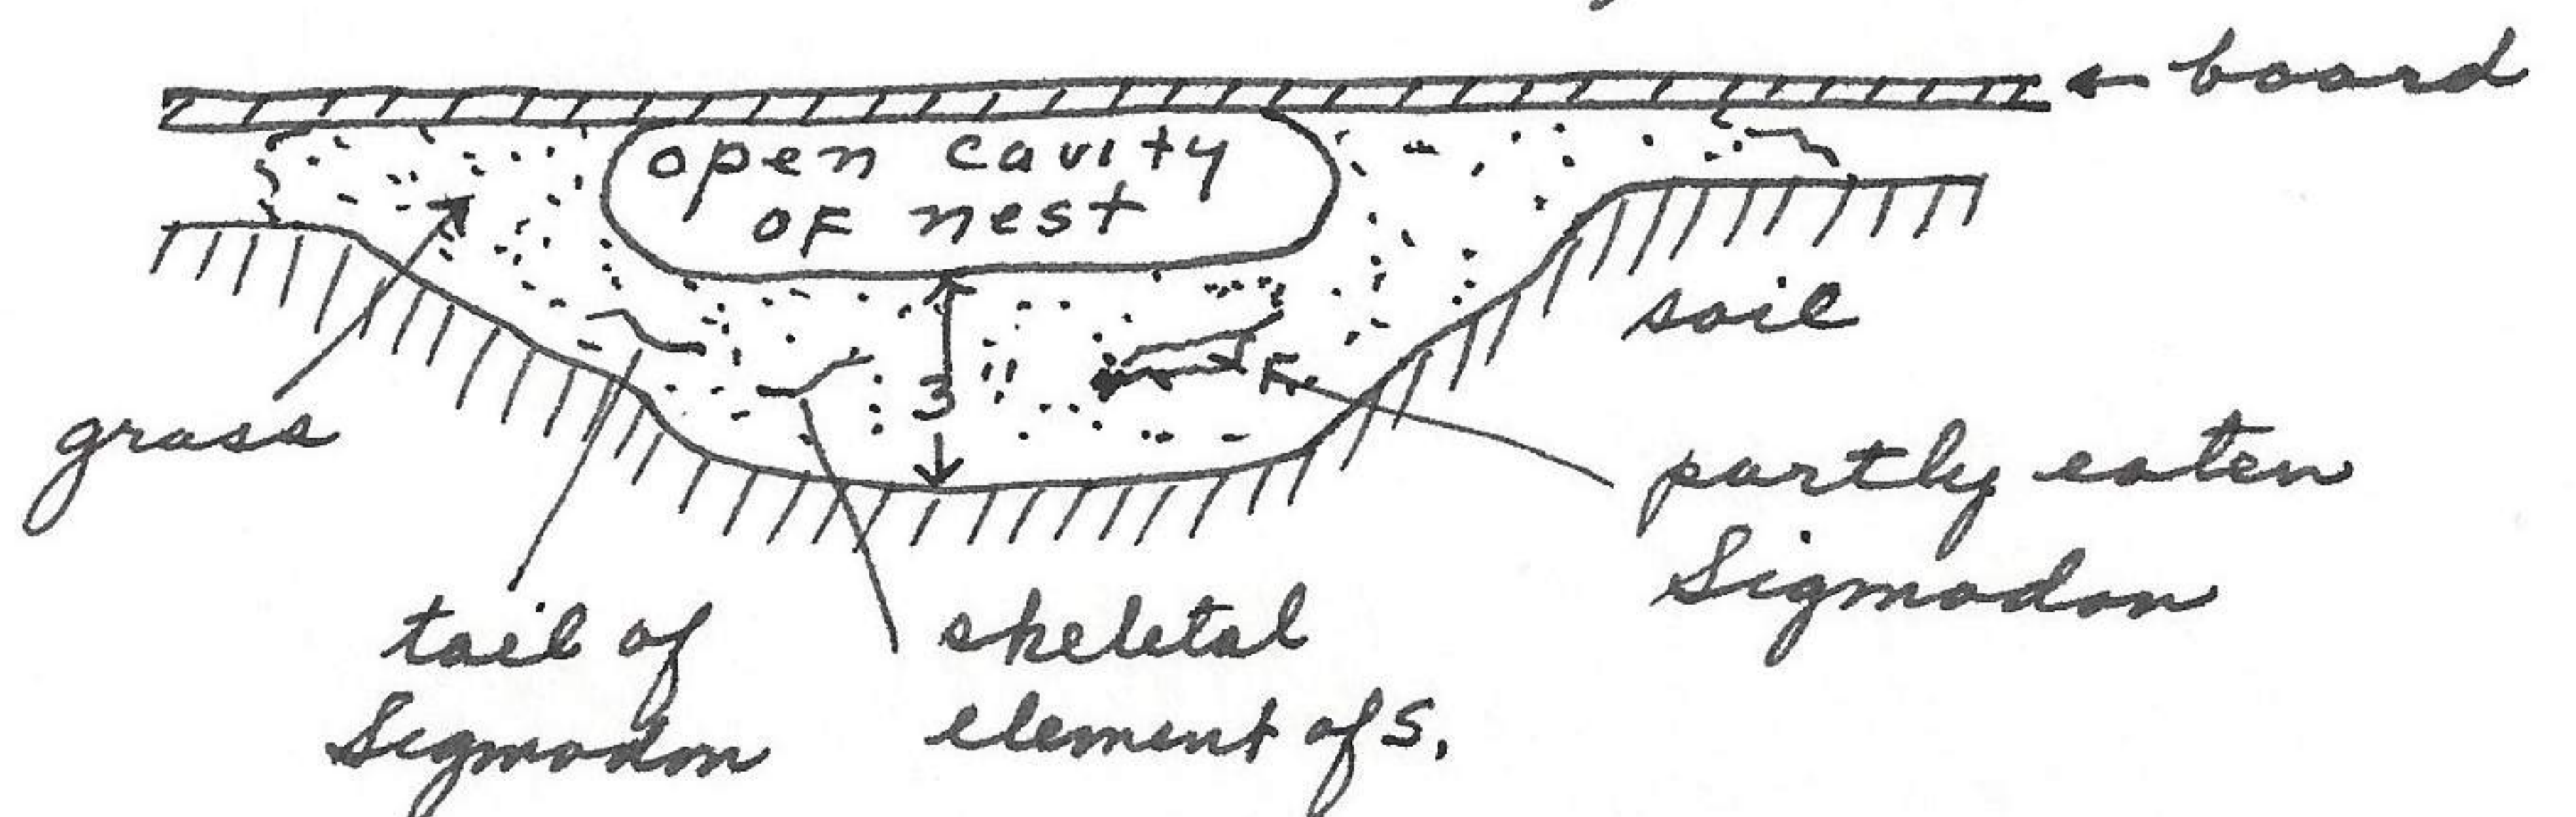 board
open cavity
of nest
soil
3
grass
partly eaten
Sigmodon
tail of
Sigmodon
skeletal
element of S.